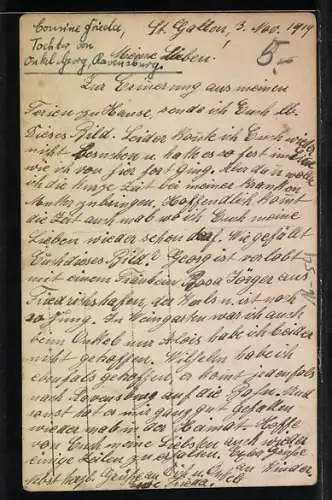 Cousine Frieda,
Tochter von
Onkel Georg, Ravensburg.
St. Gallen, 3. Nov. 1919
5.-
Meine Lieben!
Zur Erinnerung aus meinen
Ferien zu Hause, sende ich Euch
dieses Bild. Leider konnte ich Euch wieder
nicht besuchen u. hatte es so fest im
wie ich von hier fort ging. Aber da wollte
ich die kurze Zeit bei meiner kranken
Mutter zubringen. Hoffendlich kommt
die Zeit auch mal wo ich Euch meine
Lieben wieder sehen darf. Wie gefällt
Euch dieses Bild? Georg ist verlobt
mit einem Fräulein Rosa Jörger aus
Friedrichshafen, der u. ist noch
so jung. In Weingarten war ich auch
beim Onkel nur habe ich leider
nicht getroffen. Wilhelm habe ich
ebenfalls getroffen, er kommt jedenfalls
nach Ravensburg auf die Bahn. Und
sonst hat es mir ganz gut gefallen
wieder mal in der Heimat. Hoffe
von Euch meine Liebsten auch wieder
einige Zeilen zu erhalten. Eure Grüße
Grüße an u. Onkel Kinder